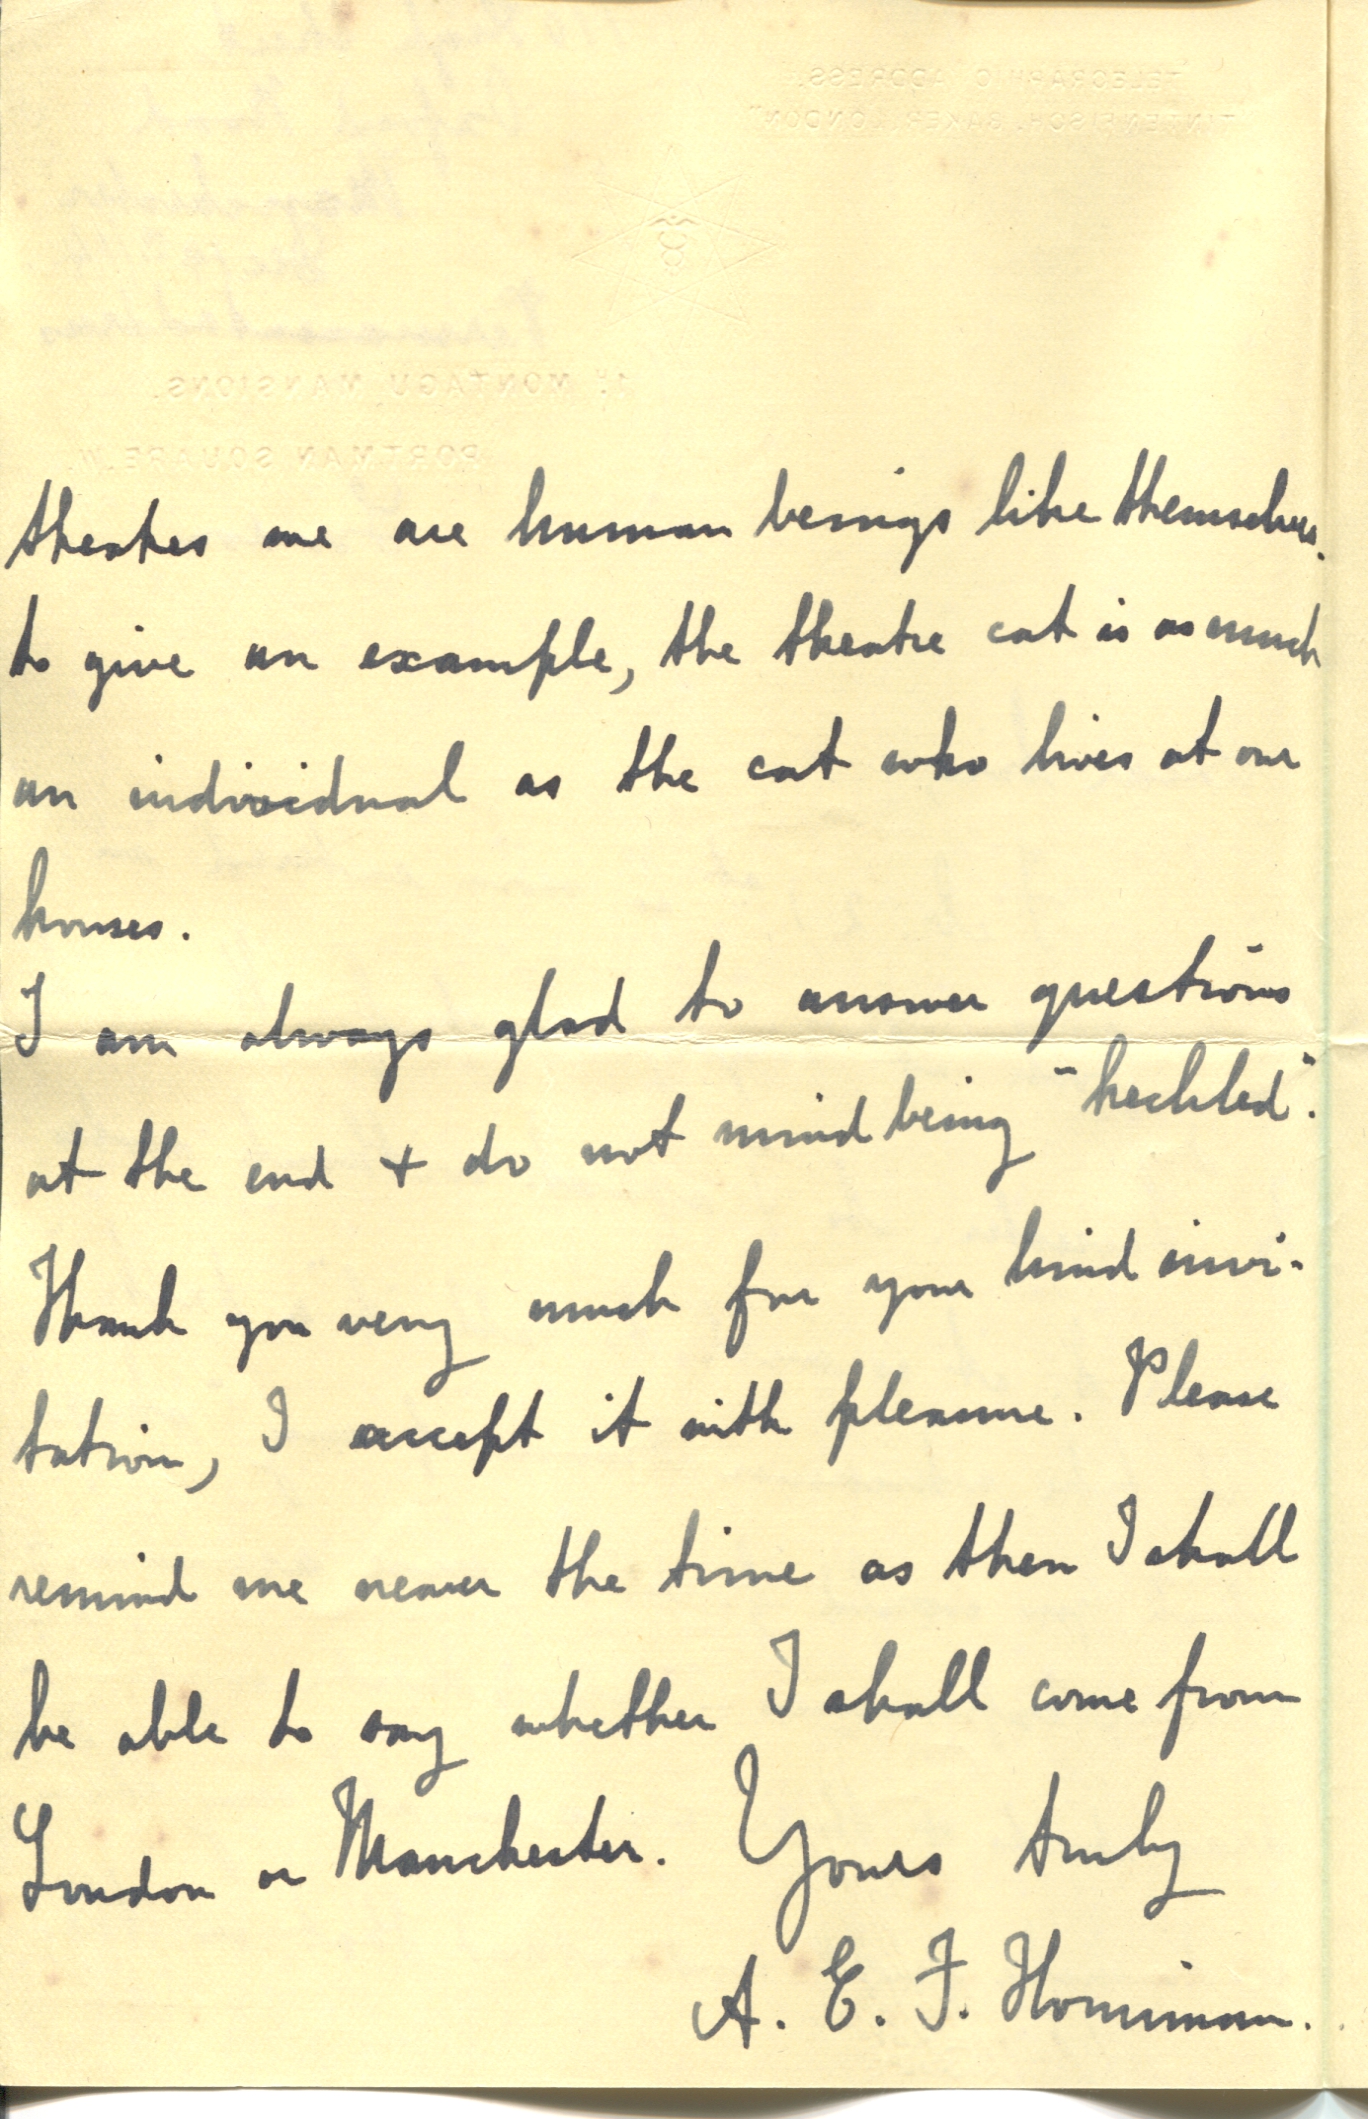 TELEGRAPHIC ADDRESS.
"TINTENFISCH, BAKER, LONDON"
1H MONTAGU MANSIONS.
PORTMAN SQUARE. W.
theatres we are human beings like themselves.
to give an example, the theatre cat is as much
an individual as the cat who lives at our
houses.
I am always glad to answer questions
at the end + do not mind being "heckled".
Thank you very much for your kind invi-
tation, I accept it with pleasure. Please
remind me nearer the time as then I shall
be able to say whether I shall come from
London or Manchester. Yours truly
A. E. F. Horniman.